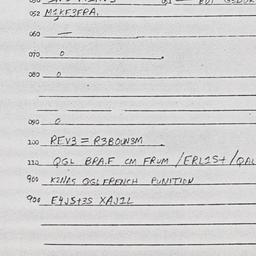 052 M1KF3FRA.
060 —
070 0
080 0
090 0
100 REV3 = R3BOUN3M
110 QGL BRA.F CM FRUM /ERL1S+/QAL
900 K2NAS QGL FRENCH PUNITION
900 E4JS+3S XAJ1L